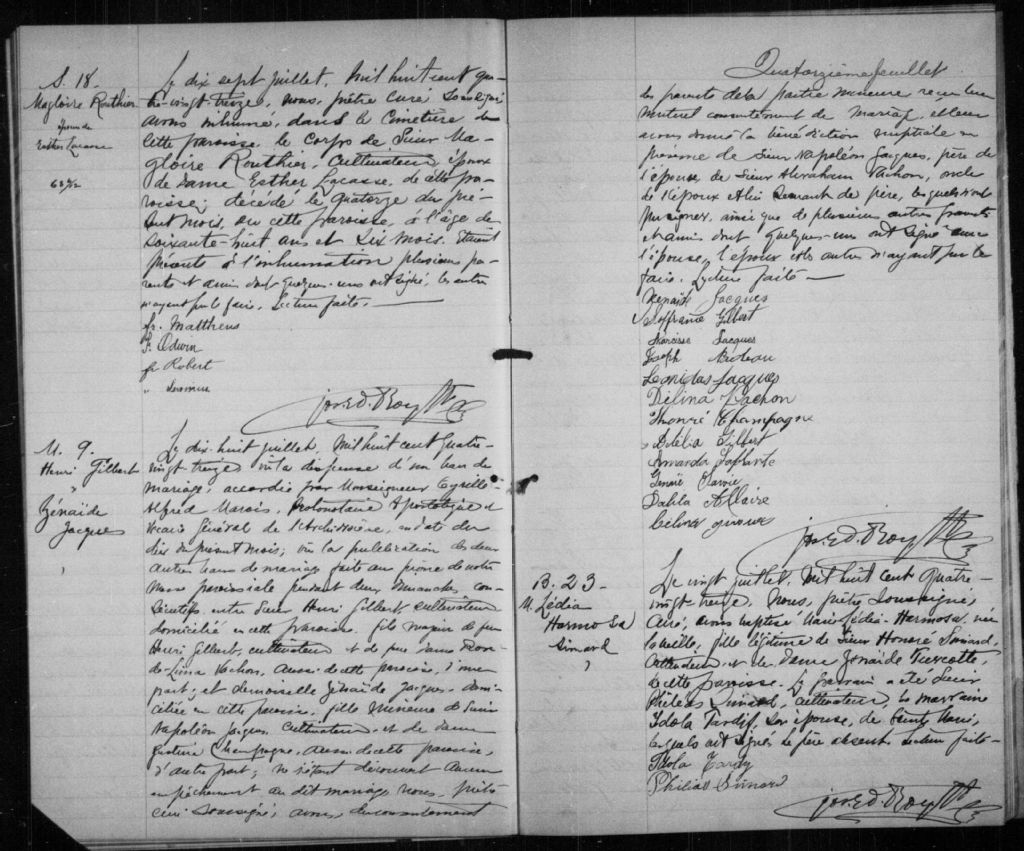 S. 18.
Magloire Routhier
Epoux de
Esther Lacasse
68 6/12
Le dix sept juillet, mil huit cent qua-
tre-vingt-treize, nous, prêtre curé soussigné
avons inhumé, dans le cimetière de
cette paroisse le corps de Sieur Ma-
gloire Routhier, Cultivateur, époux
de dame Esther Lacasse, de cette pa-
roisse; décédé le quatorze du pré-
sent mois, en cette paroisse, à l'âge de
soixante-huit ans et six mois. Etaient
présents à l'inhumation plusieurs pa-
rents et amis dont quelques-uns ont signé, les autres
n'ayant pu le faire. Lecture faite.
fr. Matthews
f. Odwin
fr Robert
Jos. Ed. Roy Ptre
M. 9.
Henri Gilbert
Zénaïde
Jacques
Le dix-huit juillet, mil huit cent quatre-
vingt-treize vu la dispense d'un ban de
mariage, accordée par Monseigneur Cyrille-
Alfred Marois, Protonotaire Apostolique et
Vicaire Général de l'Archidiocèse, en date du
dix du présent mois; vu la publication des deux
autres bans de mariage faite au prône de notre
Messe paroissiale pendant deux dimanches con-
sécutifs entre Sieur Henri Gilbert, cultivateur
domicilié en cette paroisse, fils majeur de feu
Henri Gilbert, cultivateur et de feue dame
de-Lima Vachon, aussi de cette paroisse, d'une
part; et demoiselle Zénaïde Jacques, domi-
ciliée en cette paroisse, fille mineure de Sieur
Napoléon Jacques Cultivateur et de dame
Champagne, aussi de cette paroisse,
d'autre part; ne s'étant découvert aucun
empêchement au dit mariage nous, prêtre
curé soussigné, avons, du consentement
Quatorzième feuillet
des parents de la partie mineure reçu leur
mutuel consentement de mariage, et leur
avons donné la bénédiction nuptiale en
présence de Sieur Napoléon Jacques, père de
l'épouse de Sieur Abraham Vachon, oncle
de l'époux et lui servant de père, lesquels n'ont
pu signer, ainsi que de plusieurs autres parents
et amis dont quelques-uns ont signé avec
l'épouse, l'époux et les autres n'ayant pu le
faire. Lecture faite
Zenaïde Jacques
Soffranie Gilbert
Narcisse Jacques
Joseph
Leonidas Jacques
Délina Vachon
Honoré Champagne
Délélia Gilbert
Amanda Laflante
Dahla Allaire
Jos. Ed. Roy Ptre
B. 23
M. Lédia
Harmosa
Simard
Le vingt juillet, mil huit cent quatre-
vingt-treize, nous, prêtre soussigné,
curé, avons baptisé Marie Lédia-Harmosa, née
la veille, fille légitime de Sieur Honoré Simard,
cultivateur, et de dame Zénaïde Turcotte,
de cette paroisse. Le parrain a été Sieur
Philéas Simard, cultivateur, la marraine
Idola Tardif, son épouse, de Sainte Marie,
lesquels ont signé. Le père absent. Lecture faite
Idola Tardif
Philias Simard
Jos. Ed. Roy Ptre